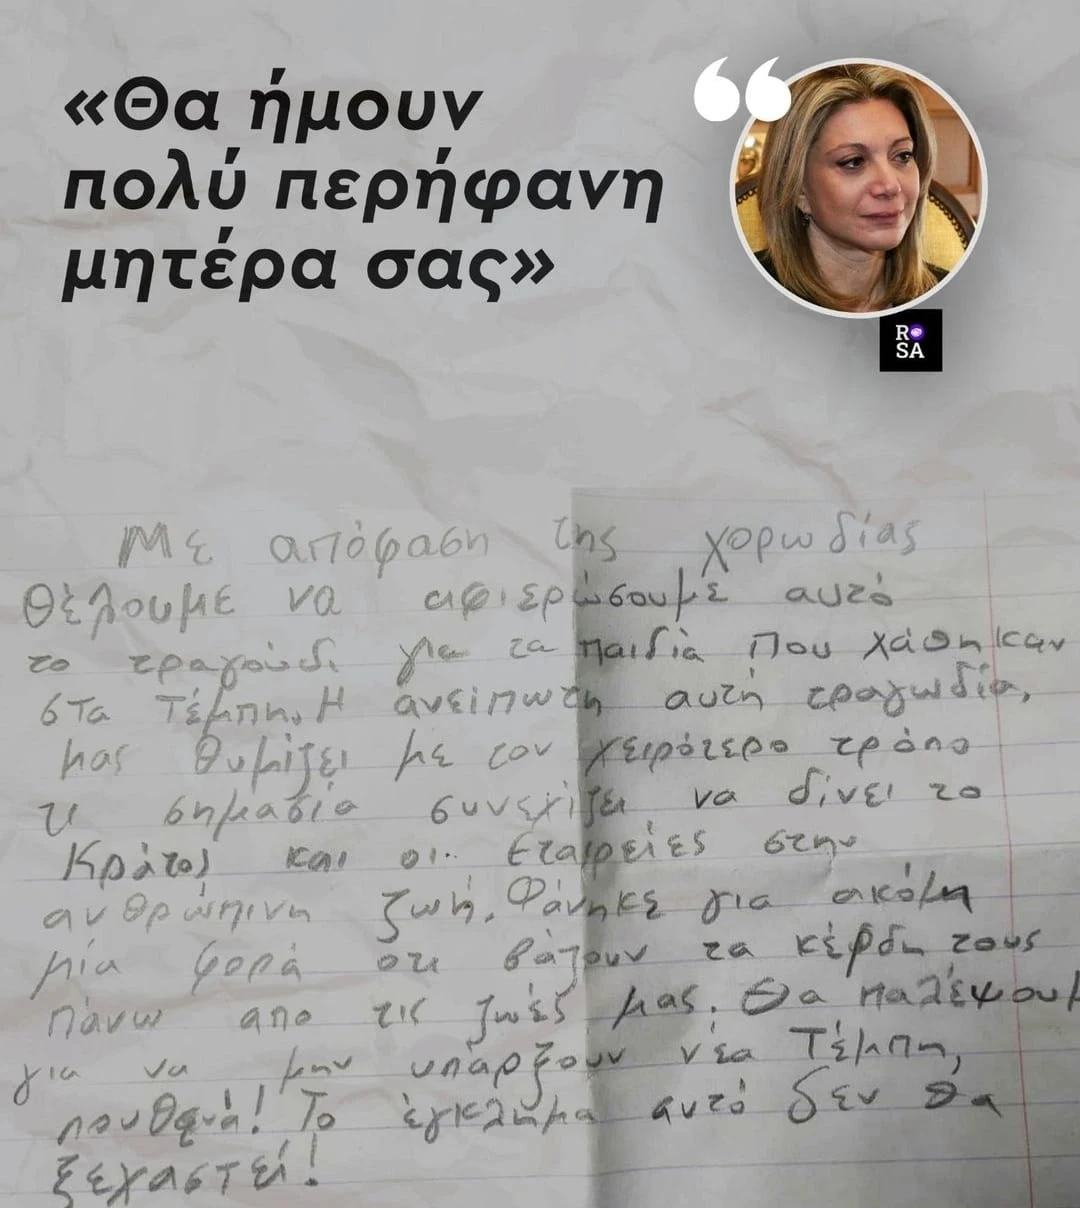 «Θα ήμουν
πολύ περήφανη
μητέρα σας»
R SA
Με απόφαση της χορωδίας
θέλουμε να αφιερώσουμε αυτό
το τραγούδι για τα παιδιά που χάθηκαν
στα Τέμπη. Η ανείπωτη αυτή τραγωδία,
μας θυμίζει με τον χειρότερο τρόπο
τι σημασία συνεχίζει να δίνει το
Κράτος και οι Εταιρείες στην
ανθρώπινη ζωή. Φάνηκε για ακόμη
μία φορά οτι βάζουν τα κέρδη τους
πάνω απο τις ζωές μας. Θα παλέψουμ
για να μην υπάρξουν νέα Τέμπη,
πουθενά! Το έγκλημα αυτό δεν θα
ξεχαστεί!